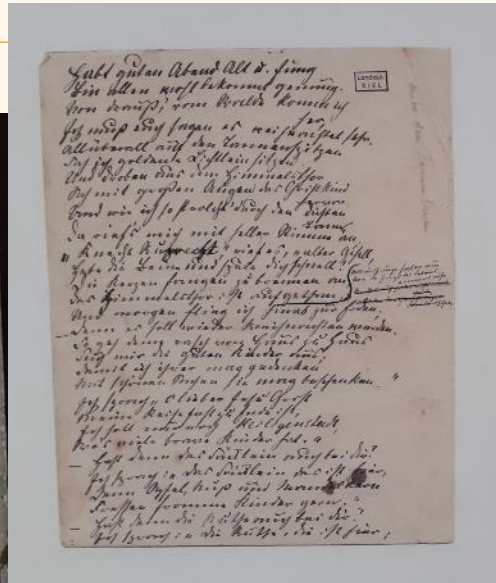 Habt guten Abend Alt u. Jung
Bin allen wohl bekannt genung.
Von drauß', vom Walde komm ich
her;
Ich muß euch sagen es weihnachtet sehr.
Allüberall auf den Tannenspitzen
Sah ich goldene Lichtlein sitzen
Und droben aus dem Himmelsthor
Sah mit großen Augen das Christkind
hervor
Und wie ich so strolcht' durch den dichten
Tann,
Da rief's mich mit heller Stimme an,
"Knecht Ruprecht," rief es, "alter Gesell,
Hebe die Beine und spute dich schnell!
Die Kerzen fangen zu brennen an
Das Himmelsthor ist aufgethan,
Und morgen flieg ich hinab zur Erden,
Denn es soll wieder Weihnachten werden.
So geh denn rasch von Haus zu Haus
Such mir die guten Kinder aus,
damit ich ihrer mag gedenken
Mit schönen Sachen sie mag beschenken."
Ich sprach: "O lieber Christ
Meine Reise fast zu Ende ist,
Ich soll nur noch Heiligenstadt,
Wo's viele brave Kinder hat."
Hast denn das Säcklein auch bei dir?
Ich sprach: das Säcklein das ist hier,
Denn Apfel, Nuß und Mandelkern
Fressen fromme Kinder gern."
Hast denn die Ruthe auch bei dir?
Ich sprach: die Ruthe, die ist hier;
Landesb.
KIEL